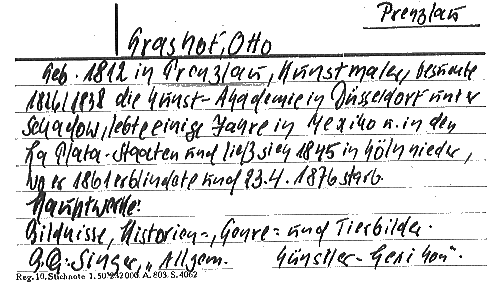 Prenzlau
Grashof, Otto
Geb. 1812 in Prenzlau, Kunstmaler, besuchte
1826/1838 die Kunst-Akademie in Düsseldorf unter
Schadow, lebte einige Jahre in Mexiko u. in den
La Plata-Staaten und ließ sich 1845 in Köln nieder,
wo er 1861 erblindete und 23.4.1876 starb.
Hauptwerke:
Bildnisse, Historien-, Genre- und Tierbilder.
Singer, „Allgem. Künstler-Lexikon“.
Reg. 10. Stichnote 1. 50 A. 803 S. 4062